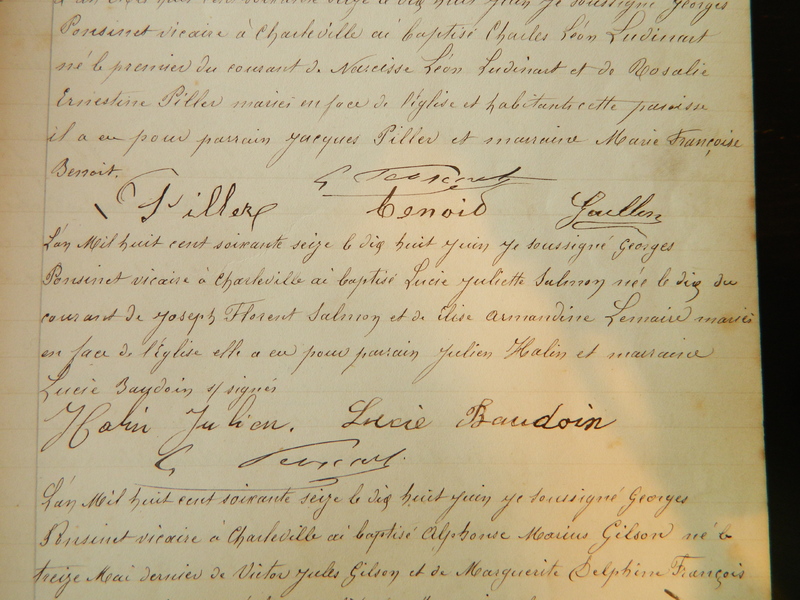 cent soixante seize le dix huit juin je soussigné Georges
Ponsinet vicaire à Charleville ai baptisé Charles Léon Ludinart
né le premier du courant de Narcisse Léon Ludinart et de Rosalie
Ernestine Piller mariés en face de l'église et habitants cette paroisse
il a eu pour parrain Jacques Piller et marraine Marie Françoise
Benoit.
G Ponsinet
Piller Benoid
L'an Mil huit cent soixante seize le dix huit juin je soussigné Georges
Ponsinet vicaire à Charleville ai baptisé Lucie Juliette Salmon née le dix du
courant de Joseph Florent Salmon et de Elise Armandine Lemaire mariés
en face de l'Eglise elle a eu pour parrain Julien Halin et marraine
Lucie Baudoin s/signés
Halin Julien. Lucie Baudoin
G Ponsinet
L'an Mil huit cent soixante seize le dix huit juin je soussigné Georges
Ponsinet vicaire à Charleville ai baptisé Alphonse Marius Gilson né le
treize Mai dernier de Victor Jules Gilson et de Marguerite Delphine François